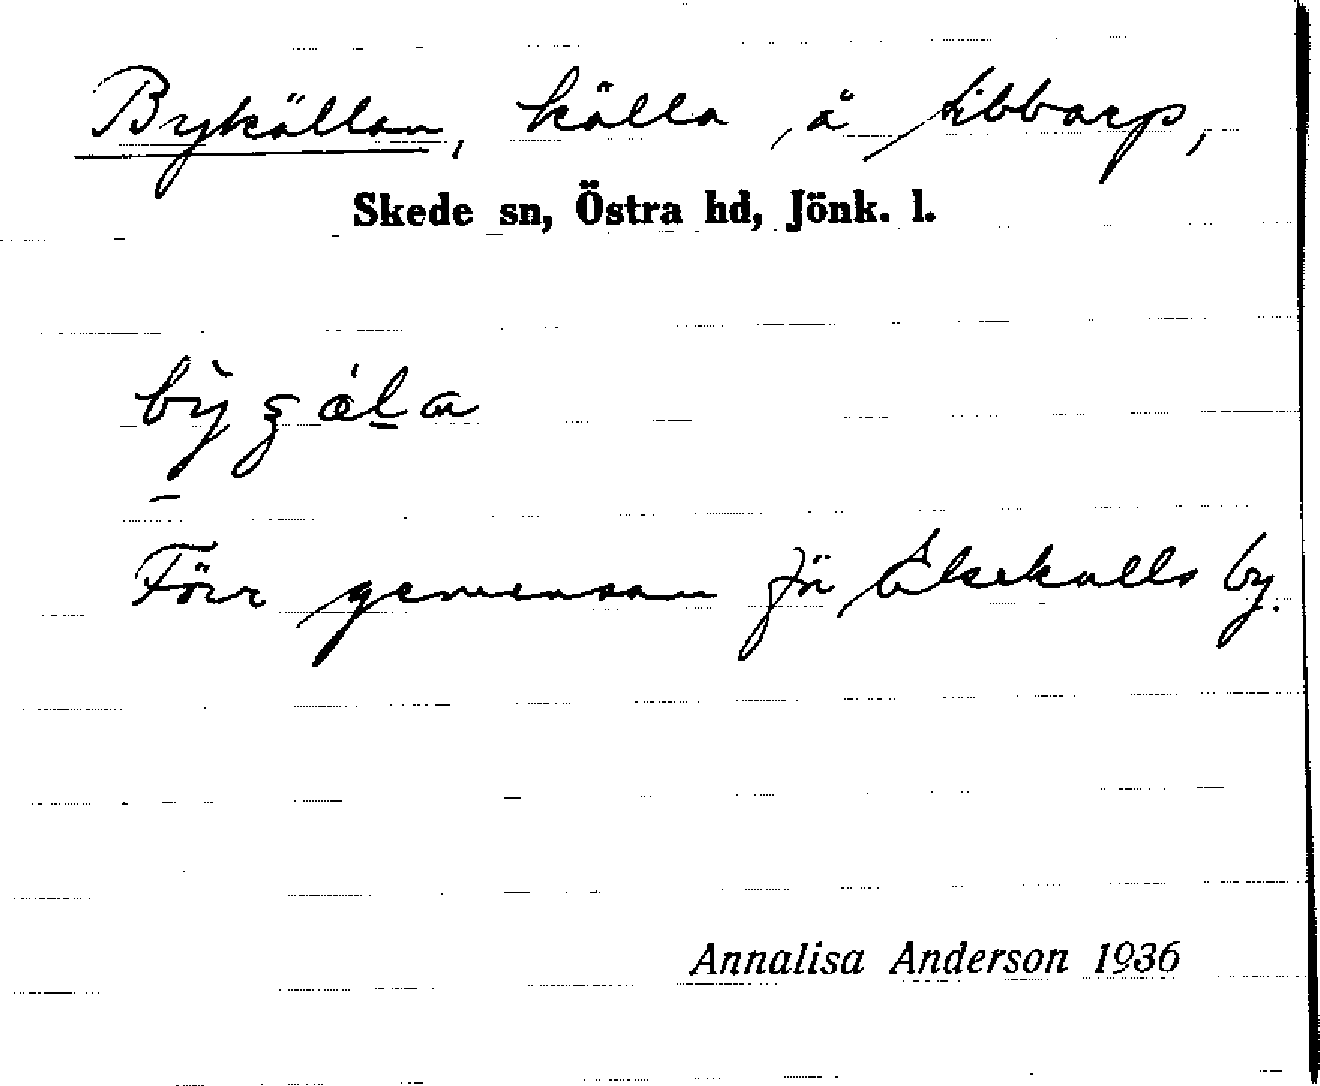 Bykällan, källa å Ribbarp,
Skede sn, Östra hd, Jönk. l.
Förr gemensam för Ekekulls by.
Annalisa Anderson 1936